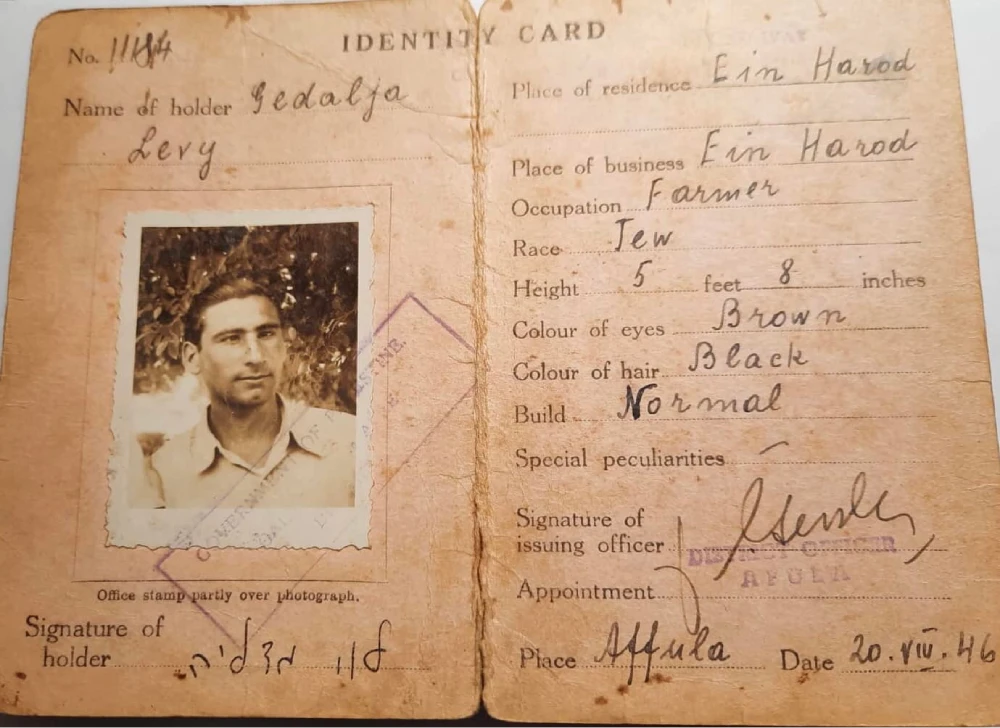 IDENTITY CARD
No.
Name of holder Gedalja
Levy
GOVERNMENT OF PALESTINE.
Office stamp partly over photograph.
Signature of
holder לוי גדליה
Place of residence Ein Harod
Place of business Ein Harod
Occupation Farmer
Race Jew
Height 5 feet 8 inches
Colour of eyes Brown
Colour of hair Black
Build Normal
Special peculiarities –
Signature of
issuing officer
DISTRICT OFFICER
AFULA
Appointment
Place Affula Date 20.VIII.46